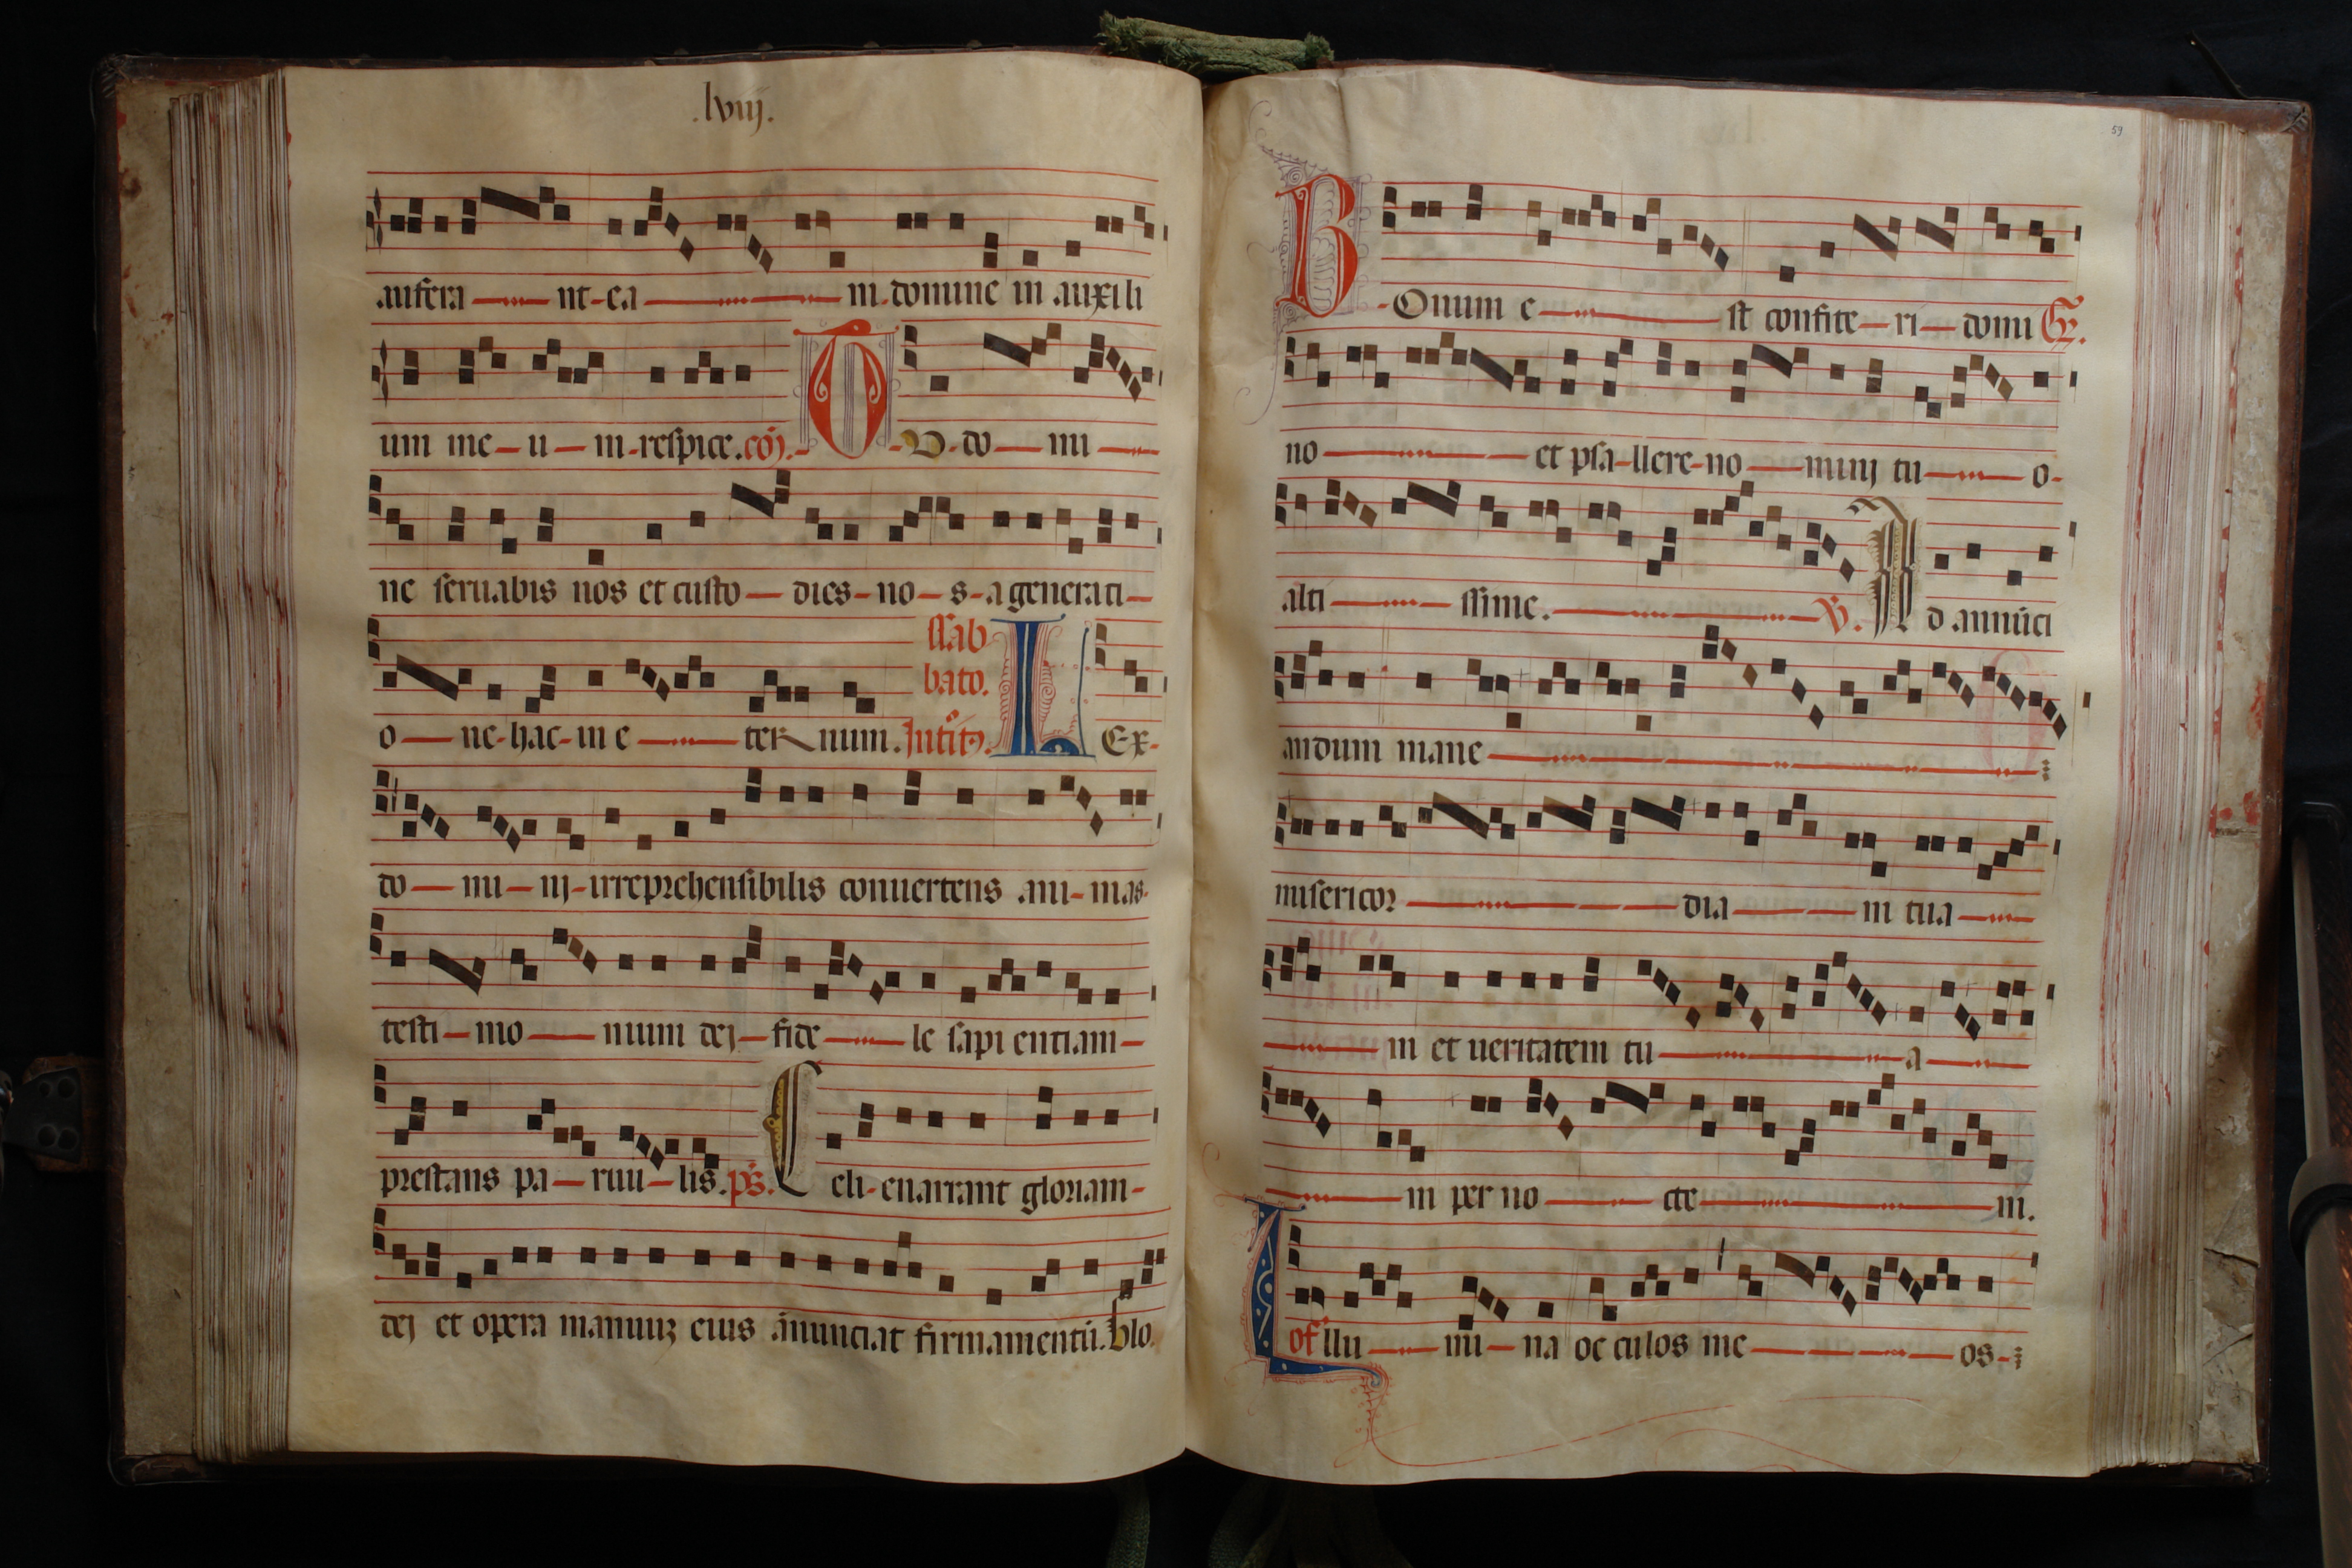 .lviij.
aufera nt-ea m-domine in auxili
um me-u-m-respice.cōı. T V-do-mi
ne seruabis nos et custo-dies-no-s-a generati-
ssab
bato.
o-ne-hac-in e-ter num. Introitꝰ. L Ex-
do-mi-nj-irreprehensibilis conuertens ani-mas-
testi-mo-nium dej-fide-le sapi entiam-
prestans pa-ruu-lis. ps. C eli-enarrant gloriam-
dej et opera manuuȝ eius ānunciat firmamentū. Glo.
59
B-Onum e-st confite-ri-domi Gr.
no-et psa-llere-no-minj tu-o-
alti-ssime. V. A d annūci
andum mane
misericor dia in tua
m et ueritatem tu a
m per no cte m.
I of llu mi-na oc culos me os-